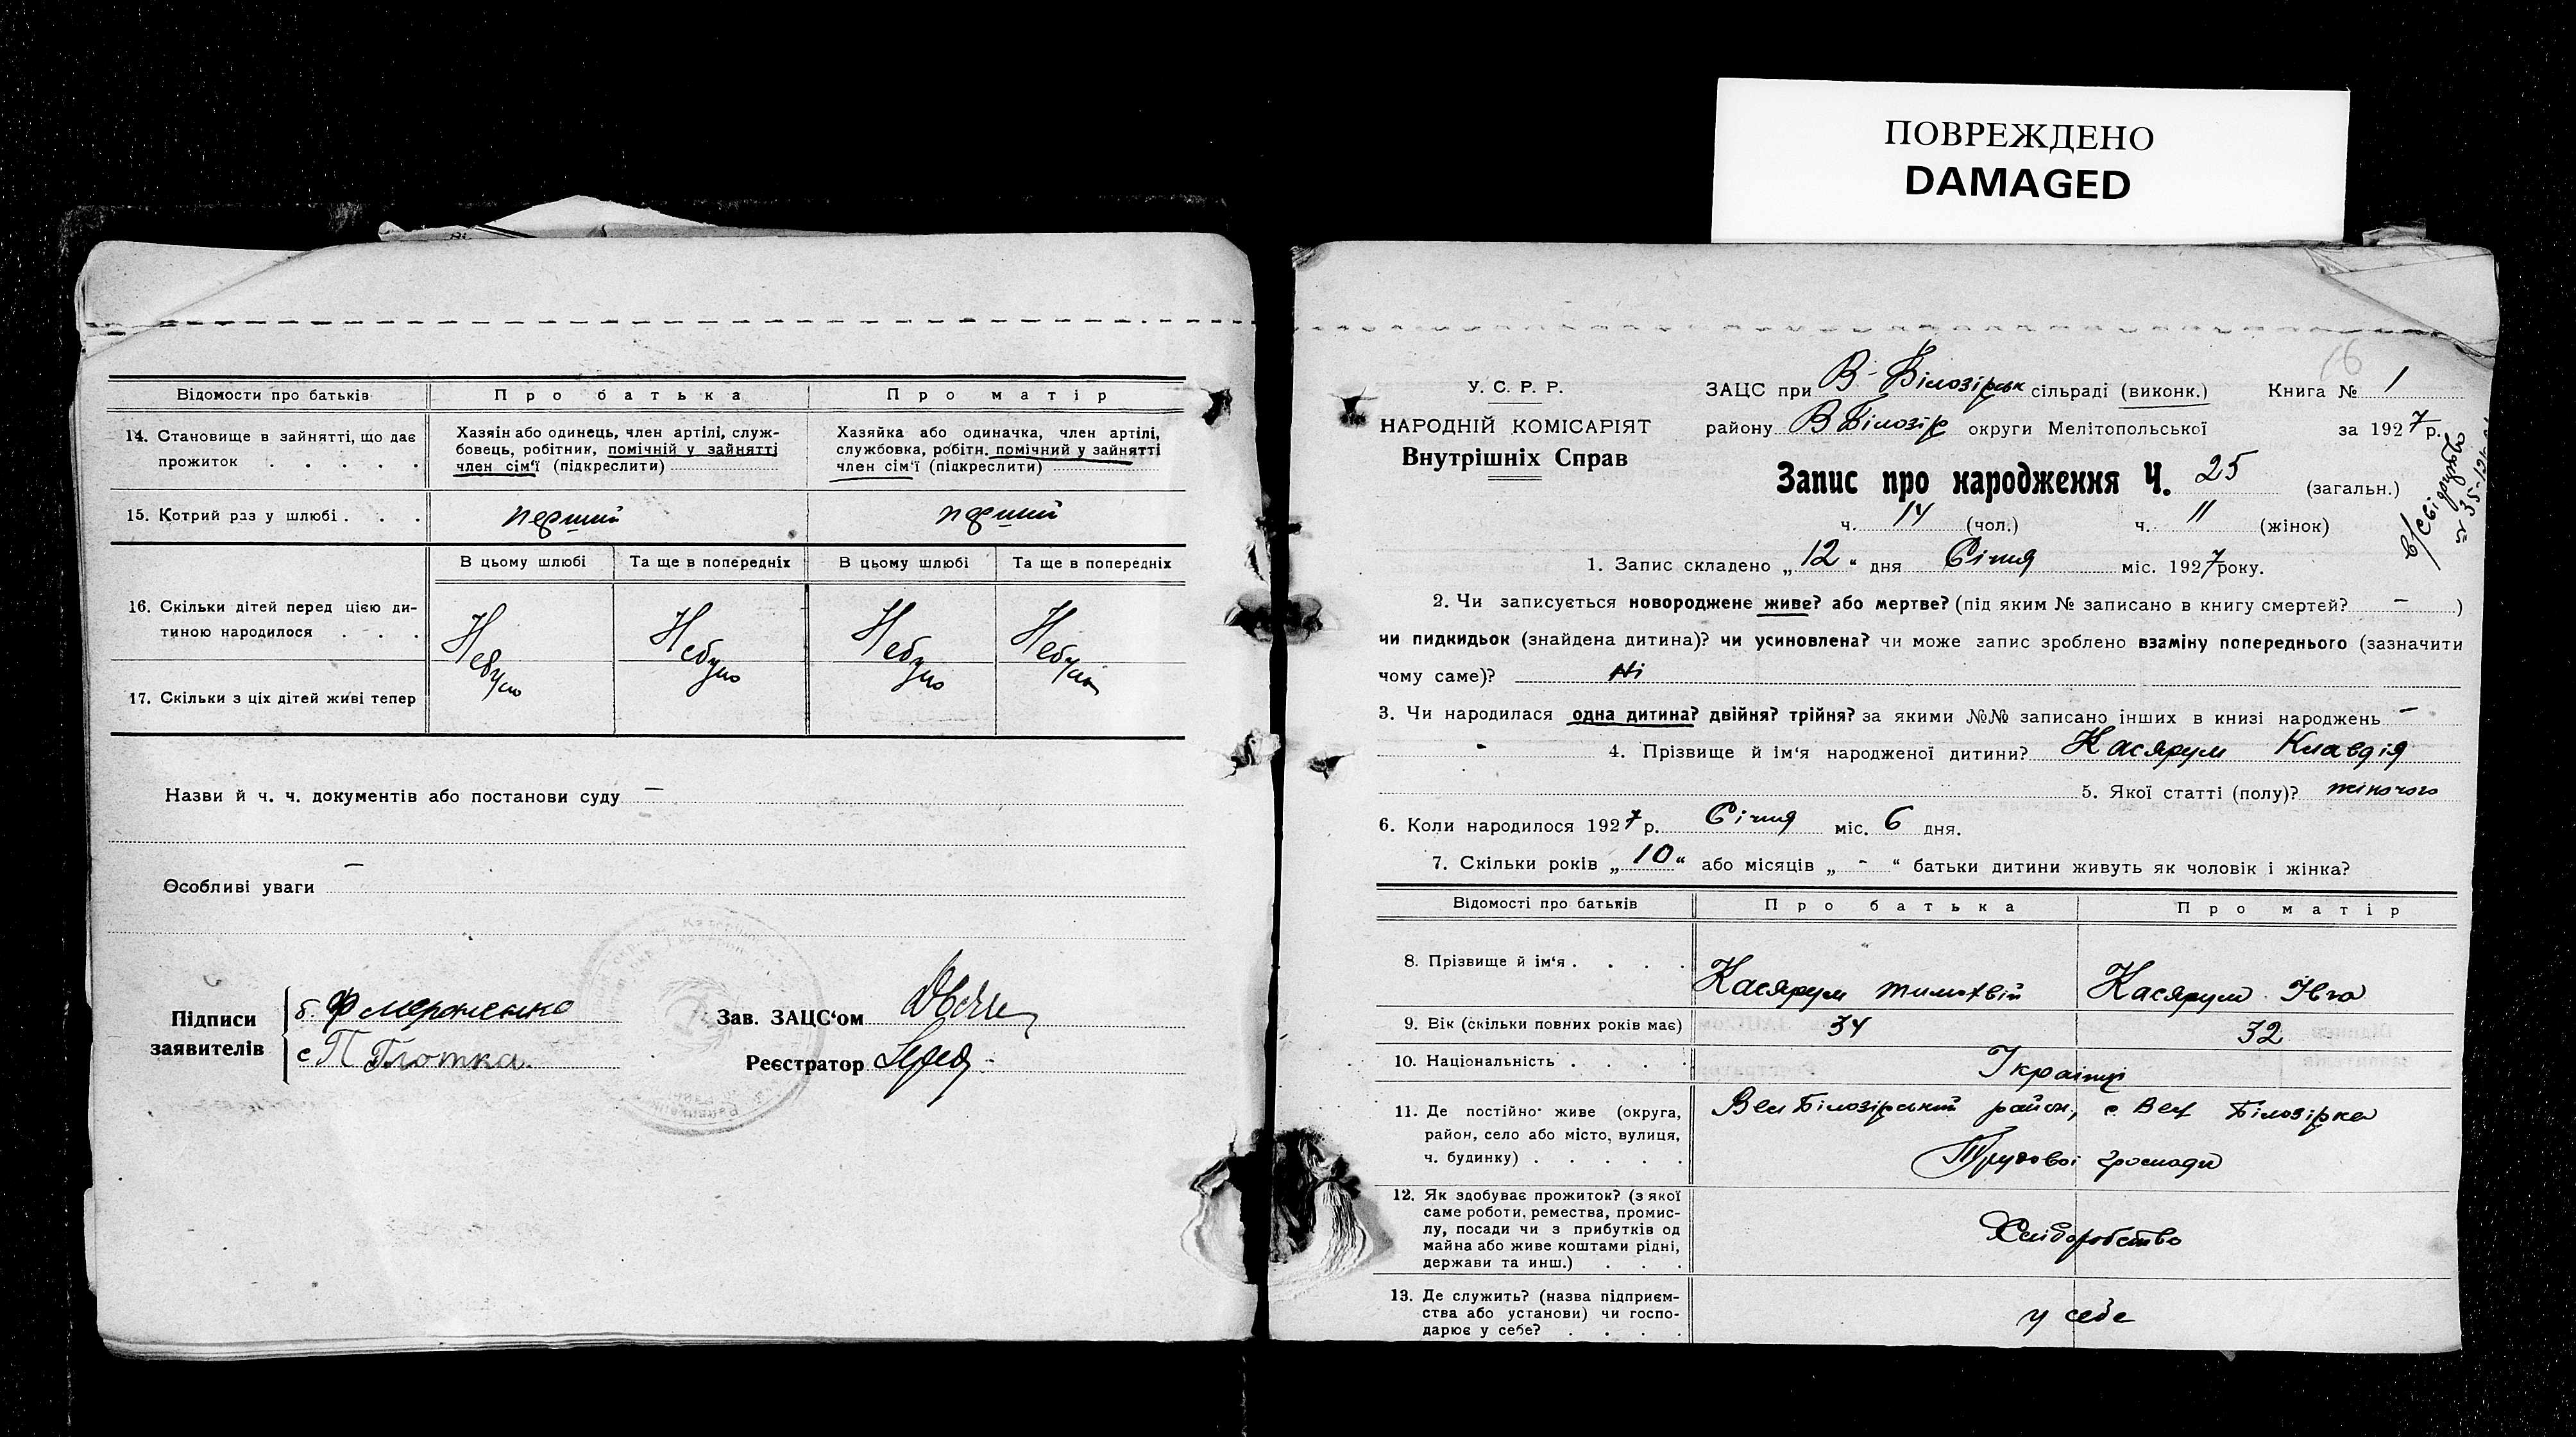 ПОВРЕЖДЕНО
DAMAGED
Відомости про батьків
Про батька
Про матір
14. Становище в зайнятті, що дає
прожиток . . . . .
Хазяїн або одинець, член артілі, служ-
бовець, робітник, помічній у зайнятті
член сім'ї (підкреслити)
Хазяйка або одиначка, член артілі,
службовка, робітн. помічний у зайнятті
член сім'ї (підкреслити)
15. Котрий раз у шлюбі . . .
перший
перший
В цьому шлюбі
Та ще в попередніх
В цьому шлюбі
Та ще в попередніх
16. Скільки дітей перед цією ди-
тиною народилося . . .
17. Скільки з ціх дітей живі тепер
Небуло
Небуло
Небуло
Небуло
Назви й ч. ч. документів або постанови суду —
Особливі уваги —
Підписи
заявителів
б.
с П Глотка.
Зав. ЗАЦС'ом
Реєстратор
У. С. Р. Р.
НАРОДНІЙ КОМІСАРІЯТ
Внутрішніх Справ
16
ЗАЦС при В-Білозірськ сільраді (виконк.) Книга № 1
району В Білозір округи Мелітопольської за 1927 р.
Запис про народження Ч. 25 (загальн.)
ч. 14 (чол.) ч. 11 (жінок)
1. Запис складено „12" дня Січня міс. 1927 року.
2. Чи записується новороджене живе? або мертве? (під яким № записано в книгу смертей? — )
чи пидкидьок (знайдена дитина)? чи усиновлена? чи може запис зроблено взаміну попереднього (зазначити
чому саме)? Ні
3. Чи народилася одна дитина? двійня? трійня? за якими №№ записано інших в книзі народжень —
- 4. Прізвище й ім'я народженої дитини? Касярум Клавдія
5. Якої статті (полу)? жіночого
6. Коли народилося 1927 р. Січня міс. 6 дня.
7. Скільки років „10" або місяців „ - " батьки дитини живуть як чоловік і жінка?
Відомості про батьків
Про батька
Про матір
8. Прізвище й ім'я . . . .
Касярум Тимохвій
Касярум Івга
9. Вік (скільки повних років має)
34
32
10. Національність . . . .
Українці
11. Де постійно живе (округа,
район, село або місто, вулиця,
ч. будинку) . . . . .
Вел Білозірський район, с Вел Білозірка
Трудової громади
12. Як здобуває прожиток? (з якої
саме роботи, ремества, промис-
лу, посади чи з прибутків од
майна або живе коштами рідні,
держави та инш.) . . .
Хліборобство
13. Де служить? (назва підприєм-
ства або установи) чи госпо-
дарює у себе? . . . .
у себе